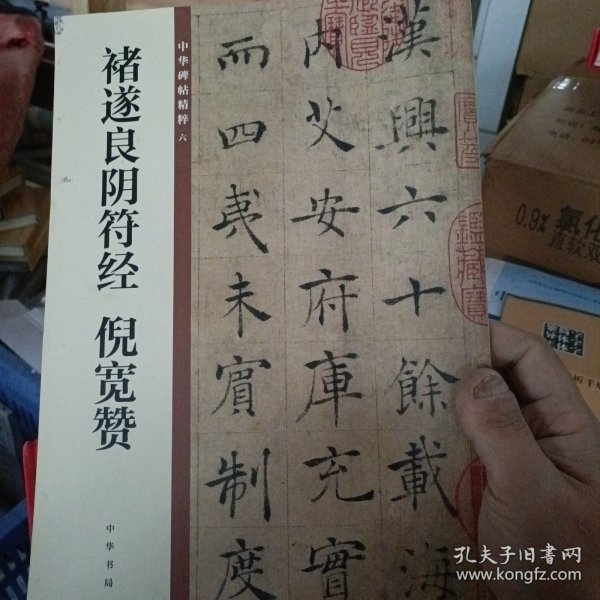 褚遂良阴符经 倪宽赞
中华碑帖精粹 六
中华书局
漢興六十餘載海
内艾安府庫充實
而四夷未賓制度
0.9% 氯化
直软双
孔夫子旧书网
www.kongfz.com